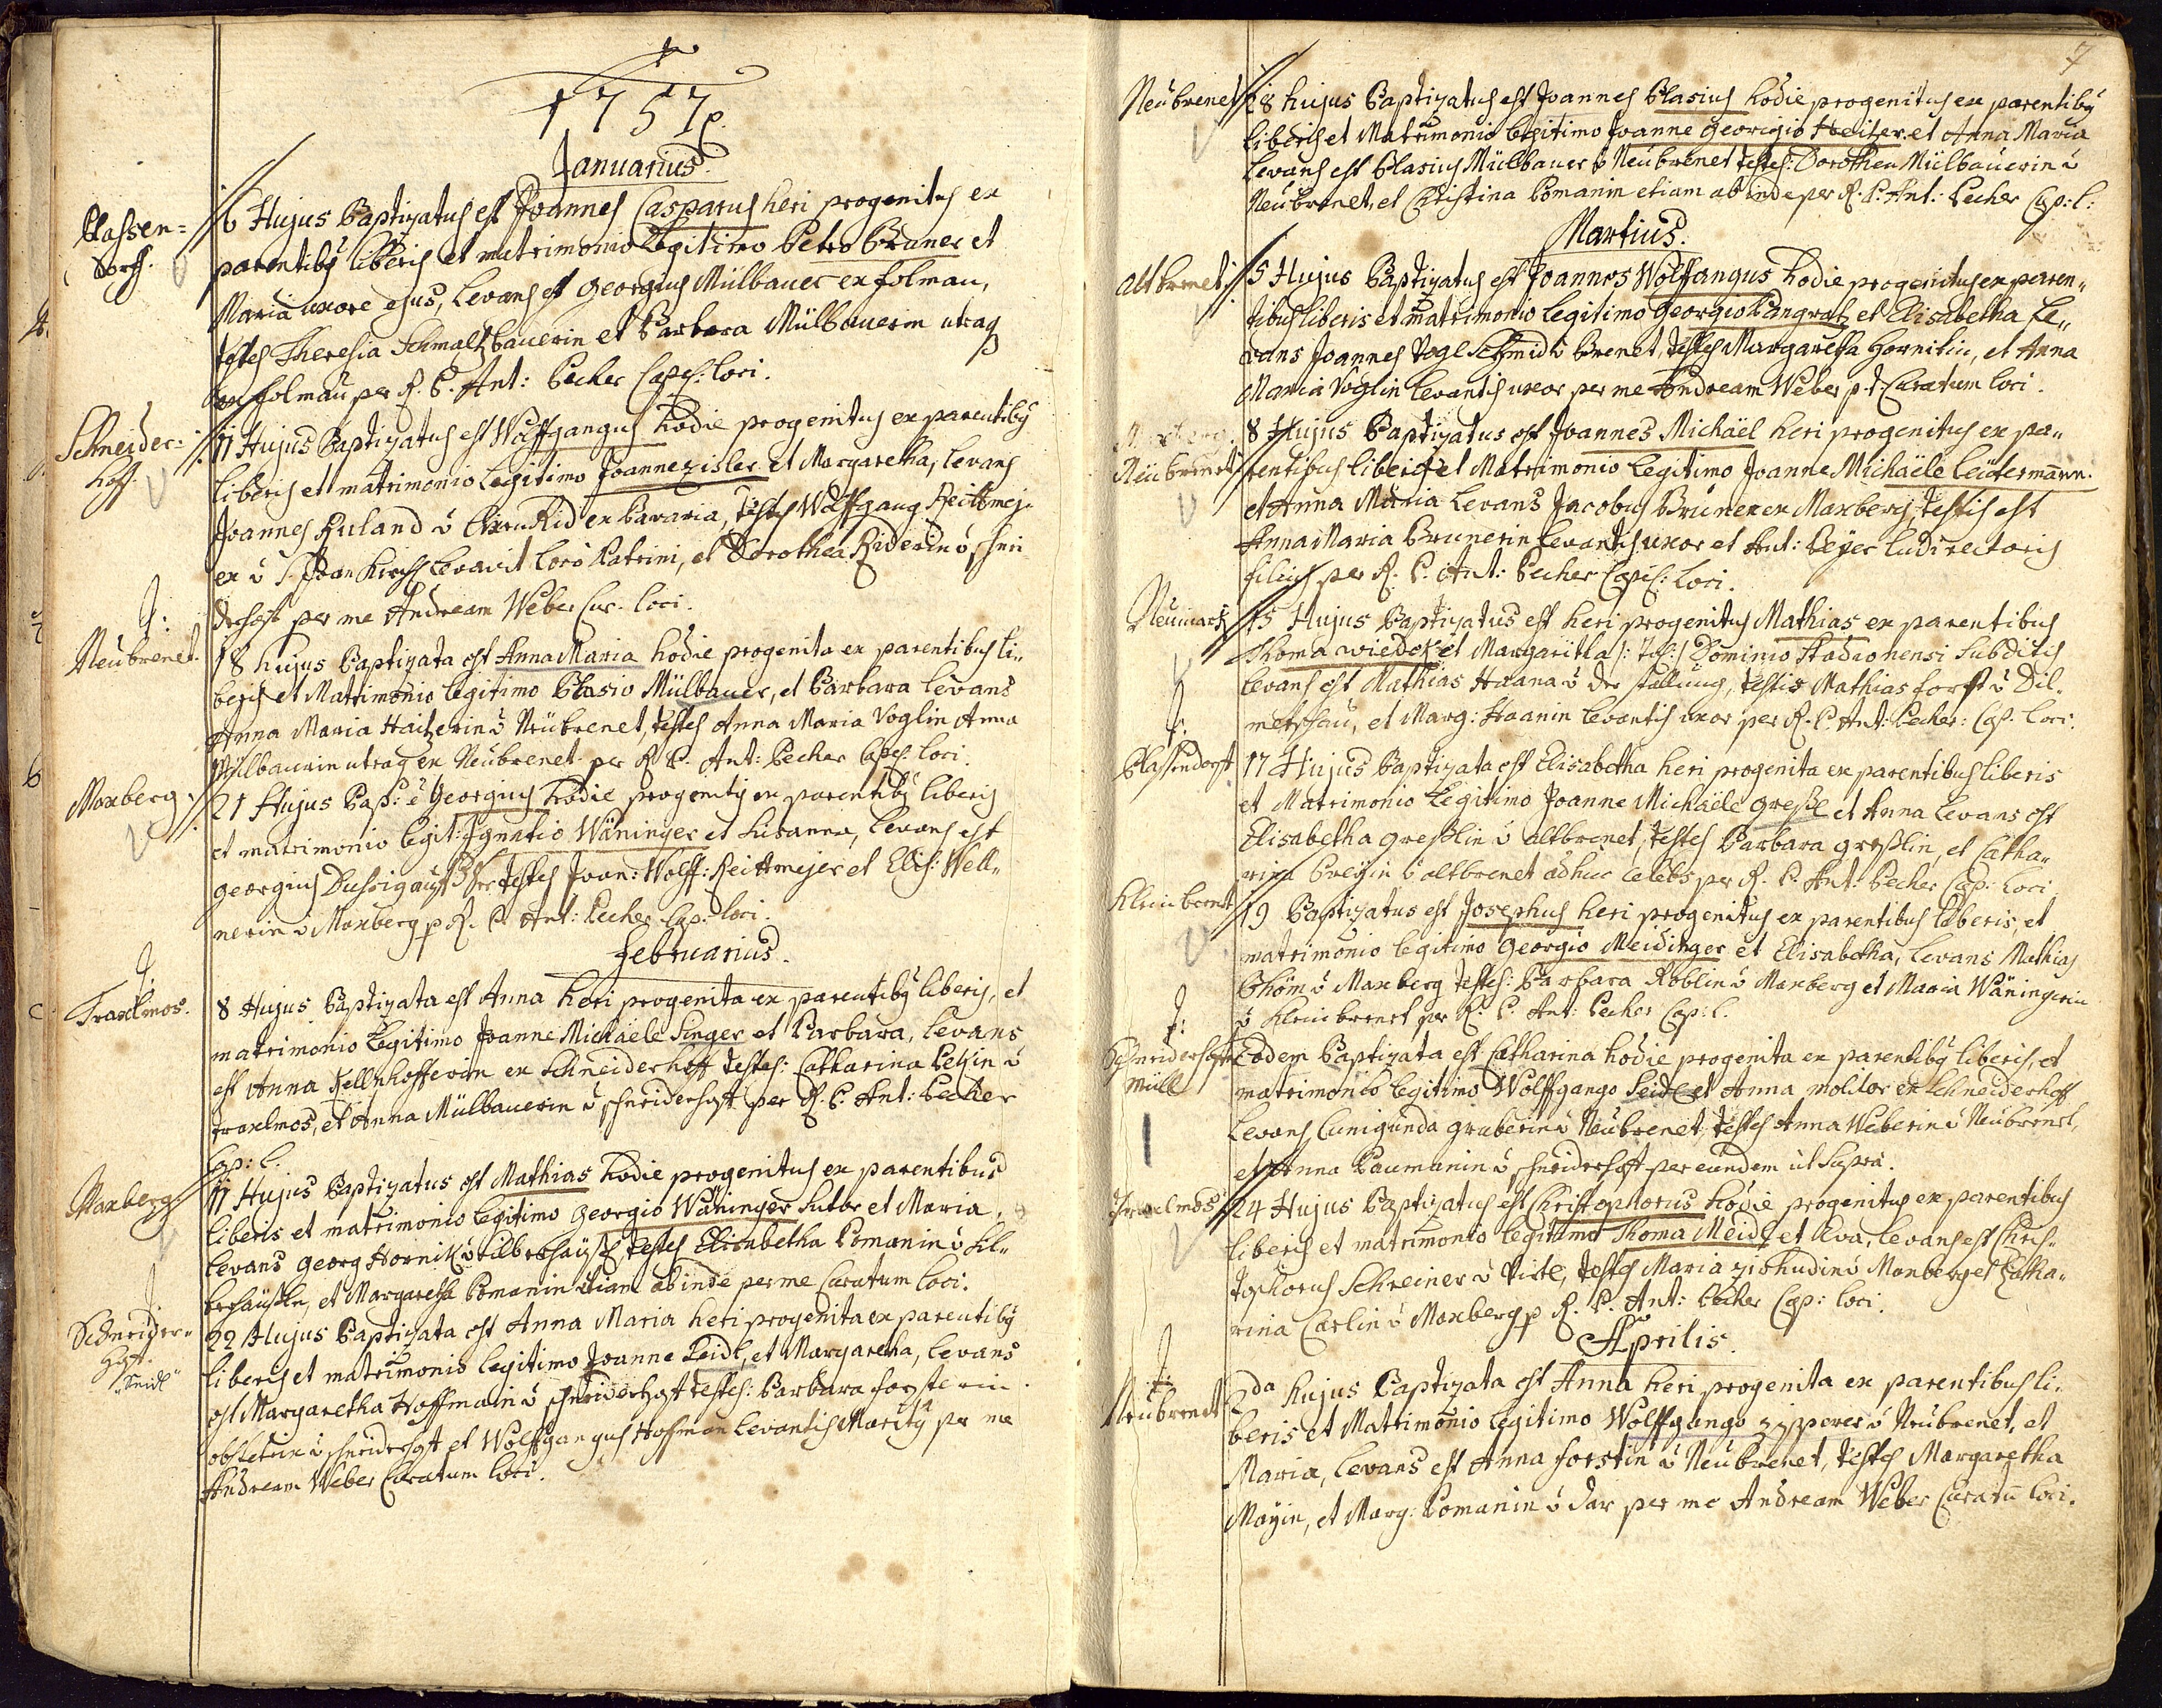 1757
Januarius.
Plassen=
dorff.
6 Hujus Baptizatus est Joannes Casparus heri progenitus ex
parentiby liberis et matrimonio Legitimo Petro Bruner et
Maria uxore ejus, Levans est Georgius Mülbauer ex folmau,
testes Theresia Schmaltzbauerin et Barbara Mülbauerin utraq
ex folmau per R. P. Ant: Pecher Capel: loci.
Schneider=
hoff.
11 Hujus Baptizatus est Wolffgangus hodie progenitus ex parentiby
liberis et matrimonio Legitimo Joanne Zisler et Margaretha, levans
Joannes Ruland ex Bavaria, testes Wolffgang Reittmej-
er levavit loco Patrini, et Dorothea Riderin schnei
derhoff per me Andream Weber Cur. loci.
Neubrenet.
18 hujus Baptizata est Anna Maria hodie progenita ex parentibus li„
beris et Matrimonio legitimo Blasio Mülbauer, et Barbara levans
Anna Maria Haitzerin v Neubrenet, testes Anna Maria Voglin Anna
Mülbauerin utraq ex Neubrenet per R P. Ant: Pecher Capel: loci.
Maxberg.
21 Hujus Bapt: e Georgius hodie progenity ex parentiby liberis
et matrimonio legit: Ignatio Wäninger et Susanna, levans est
Georgius testes Joan: Wolff: Reittmejer et Elis: Well„
nerin v Maxberg p R. P. Ant: Pecher Cap: loci.
Februarius.
Traxlmos.
8 Hujus Baptizata est Anna heri progenita ex parentiby liberis, et
matrimonio Legitimo Joanne Michaele Singer et Barbara, levans
est Anna Kellnhofferin ex Schneiderhoff testes: Catharina v
traxlmos, et Anna Mülbauerin v schneiderhoft per R. P. Ant: Pecher
Cap: l.
Maxberg.
11 Hujus Baptizatus est Mathias hodie progenitus ex parentibus
liberis et matrimonio legitimo Georgio Wäninger Sutor et Maria,
levans Georg Hornik v testes Elisabetha Pomanin v fil„
berhäußln, et Margaretha Pomanin etiam abinde per me Curatum loci.
Schneider„
hoft.
„Seidl“
22 Hujus Baptizata est Anna Maria heri progenita ex parentiby
liberis et matrimonio legitimo Joanne Seidl, et Margaretha, levans
est Margaretha Hoffmanin v schneiderhoft testes: Barbara forsterin
obstetrix v schneiderhoft et Wolffgangus Hofman levantis Marity per me
Andream Weber Curatum loci.
7
Neubrenet
28 hujus Baptizatus est Joannes Blasius hodie progenitus ex parentiby
liberis et Matrimonio legitimo Joanne Georigio Heitzer. et Anna Maria
Levans est Blasius Mülbauer v Neubrenet testes: Dorothea Mülbauerin v
Neubrenet, et Christina Pomanin etiam abinde per R. P. Ant: Pecher Cap: l:
Martius.
altbrenet.
5 Hujus Baptizatus est Joannes Wolffangus hodie progenitus ex paren„
tibus liberis et matrimonio legitimo Georgio Pangratz et Elisabetha le„
vans Joannes Vogl Schmid v Brenet, testes Margaretha Hornikin, et Anna
Maria Voglin levantis uxor per me Andream Weber p.t. Curatum loci.
Neubrenet
8 Hujus Baptizatus est Joannes Michaël heri progenitus ex pa„
rentibus liberis et Matrimonio Legitimo Joanne Michaële leutermann.
et Anna Maria Levans Jacobus Bruner ex Maxberg, testis est
Anna Maria Brunerin levantis uxor et Ant: Beyer ludirectoris
filius per R. P. Ant: Pecher Capel: loci.
Neumark
15 Hujus Baptizatus est heri progenitus Mathias ex parentibus
Thoma wieder et Margaritha Dominio Stadionensi subditis
levans est Mathias Haana v der stallung, testis Mathias forst v Dil„
metschau, et Marg: Haanin levantis uxor per R. P. Ant: Pecher: Cap. loci.
Plassendorff
17 Hujus Baptizata est Elisabetha heri progenita ex parentibus liberis
et Matrimonio Legitimo Joanne Michäele Greßl et Anna Levans est
Elisabetha greßlin v altbrenet, testes Barbara greßlin, et Catha„
rina v altbrenet adhuc celebs per R. P. Ant: Pecher Cap: loci.
Kleinbrent
19 Baptizatus est Josephus heri progenitus ex parentibus liberis, et
matrimonio legitimo Georgio Meidinger et Elisabetha, levans Mathias
Böhöm v Maxberg testes: Barbara Roblin v Maxberg et Maria Wäningerin
v Kleinbrenet per R: P. Ant: Pecher Cap: l.
Schneiderhoft
müll
Eodem Baptizata est Catharina hodie progenita ex parentiby liberis, et
matrimonio legitimo Wolffgango Seidl et Anna molitor ex Schneiderhoff
Levans Cunigunda gruberin v Neubrenet, testes Anna Weberin v Neubrenet,
et Anna Paumanin v schneiderhoft per eundem ut supra.
Traxelmos
24 Hujus Baptizatus est Christophorus hodie progenitus ex parentibus
liberis et matrimonio legitimo Thoma Meidl et Eva, levans est Chris„
tophorus Schreiner v testes Maria v Maxberg et Catha„
rina Carlin v Maxberg p R. P. Ant: Pecher Cap: loci.
Aprilis.
Neubrenet
2da hujus Baptizata est Anna heri progenita ex parentibus li„
beris et Matrimonio legitimo Wolffgango zipperer v Neubrenet, et
Maria, levans est Anna forstin v Neubrenet, testes Margaretha
Mayin, et Marg: Pomanin v dar per me Andream Weber Curatu loci.